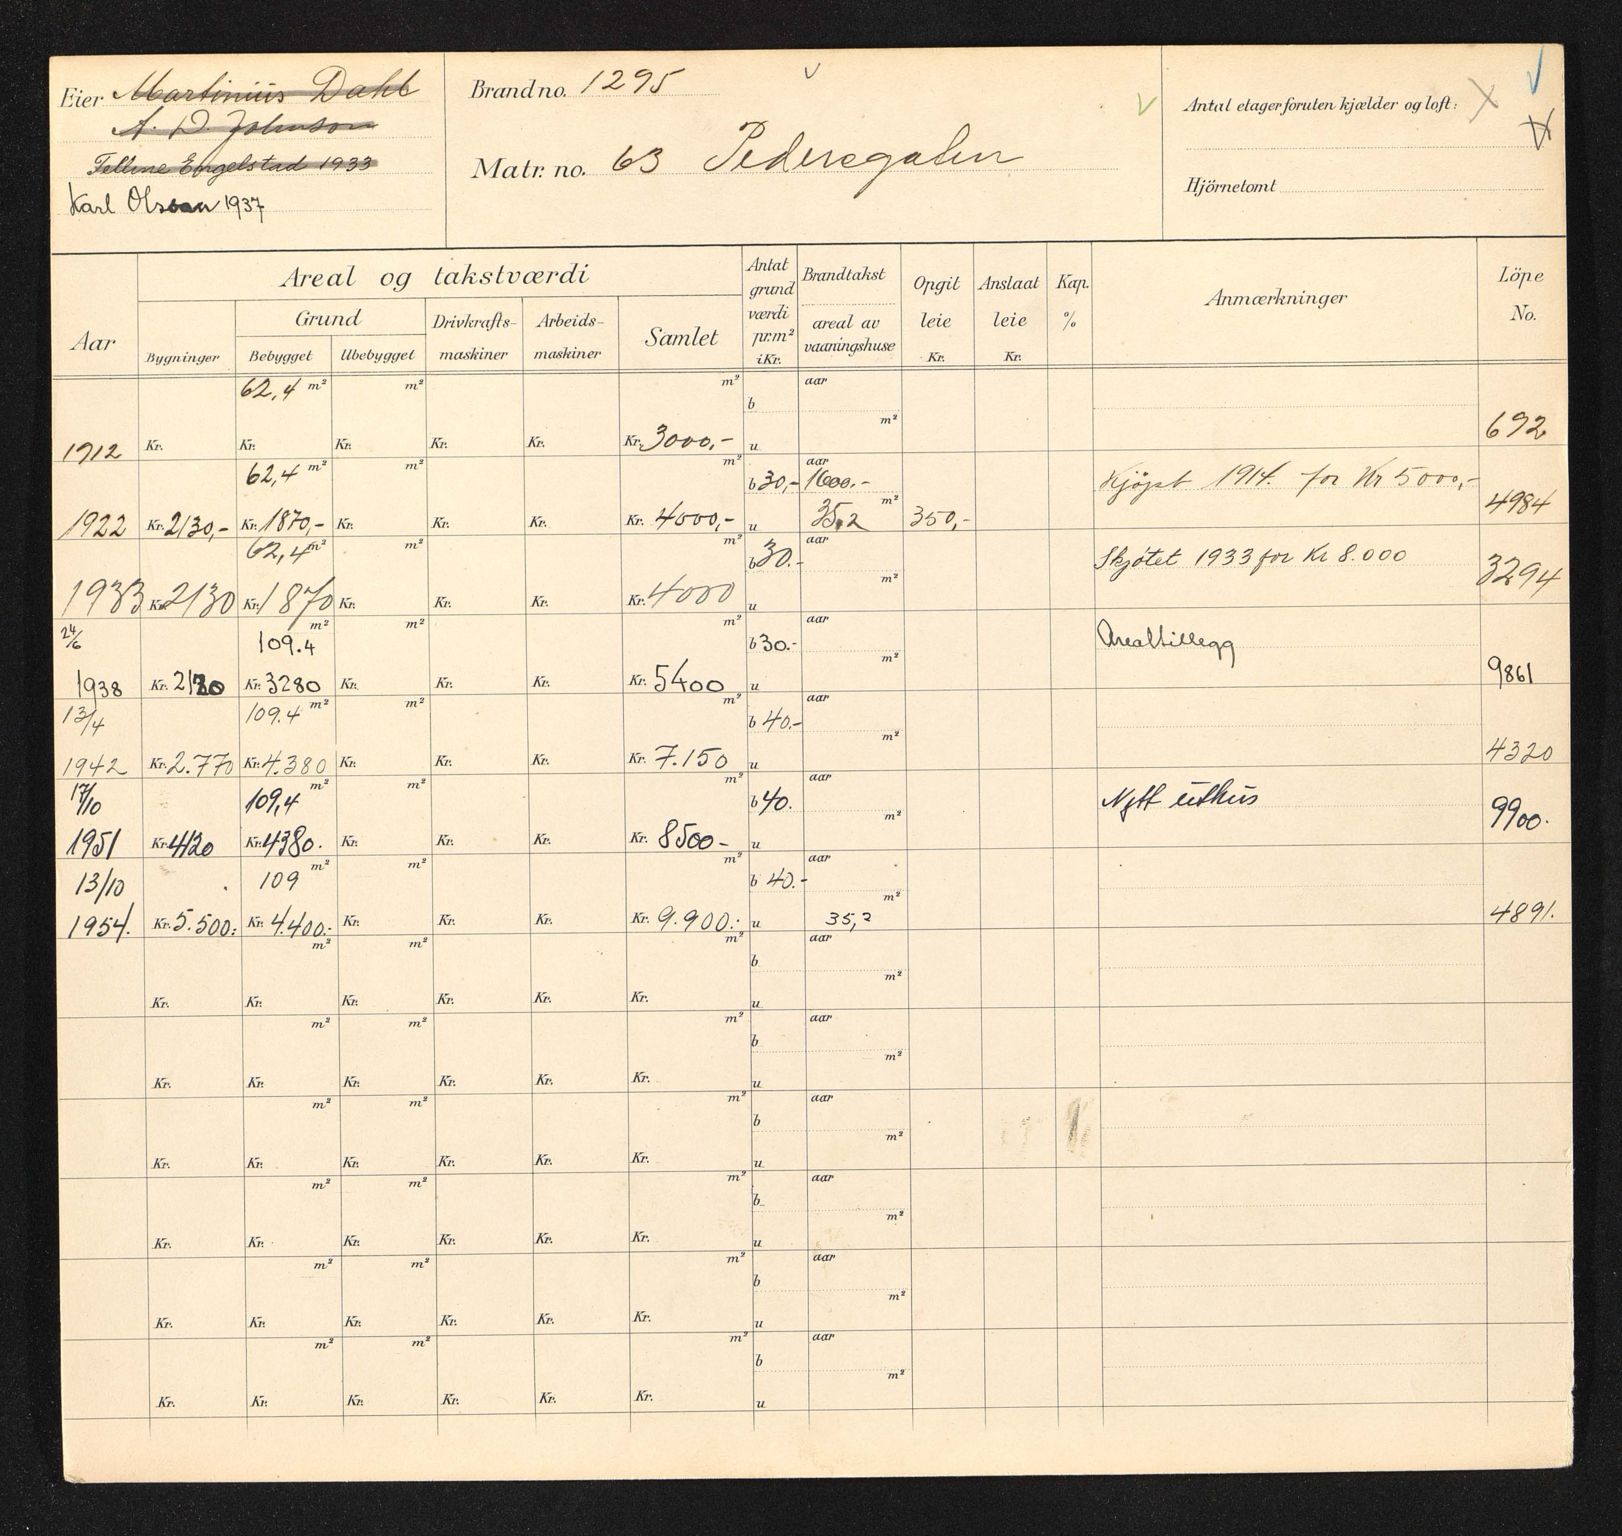 Eier Martinius Dahl
A. D. Johnson
Engelstad 1933
Karl Olssen 1937
Brandno. 1295
Matr. no. 63 Pedersgaten
Antal etager foruten kjælder og loft:
Hjörnetomt
Areal og takstværdi
Aar
Bygninger
Grund
Bebygget
Ubebygget
Drivkrafts-maskiner
Arbeids-maskiner
Samlet
Antat grund værdi pr. m² i Kr.
Brandtakst
areal av vaaningshuse
Opgit leie Kr.
Anslaat leie Kr.
Kap. %
Anmærkninger
Löpe No.
62,4 m² m² m² b aar
1912 Kr. Kr. Kr. Kr. Kr. Kr. 3000,- u m² 692
62,4 m² m² m² b 30,- aar 1600.- Kjöpt 1914. for Kr 5000,-
1922 Kr. 2130,- Kr. 1870,- Kr. Kr. Kr. Kr. 4000,- u 35,2 m² 350,- 4984
62,4 m² m² m² b 30.- aar Skjøtet 1933 for Kr 8.000
1933 Kr. 2130 Kr. 1870 Kr. Kr. Kr. Kr. 4000 u m² 3294
24/6 109.4 m² m² m² b 30.- aar Arealtillegg
1938 Kr. 2120 Kr. 3280 Kr. Kr. Kr. Kr. 5400 u m² 9861
13/4 109.4 m² m² m² b 40.- aar
1942 Kr. 2.770 Kr. 4.380 Kr. Kr. Kr. Kr. 7.150 u m² 4320
17/10 109,4 m² m² m² b 40. aar Nytt uthus
1951 Kr. 4120 Kr. 4380. Kr. Kr. Kr. Kr. 8500- u m² 9900.
13/10 109 m² m² m² b 40.- aar
1954. Kr. 5.500: Kr. 4.400:- Kr. Kr. Kr. Kr. 9.900: u 35,2 m² 4891.
m² m² m² b aar
Kr. Kr. Kr. Kr. Kr. Kr. u m²
m² m² m² b aar
Kr. Kr. Kr. Kr. Kr. Kr. u m²
m² m² m² b aar
Kr. Kr. Kr. Kr. Kr. Kr. u m²
m² m² m² b aar
Kr. Kr. Kr. Kr. Kr. Kr. u m²
m² m² m² b aar
Kr. Kr. Kr. Kr. Kr. Kr. u m²
m² m² m² b aar
Kr. Kr. Kr. Kr. Kr. Kr. u m²